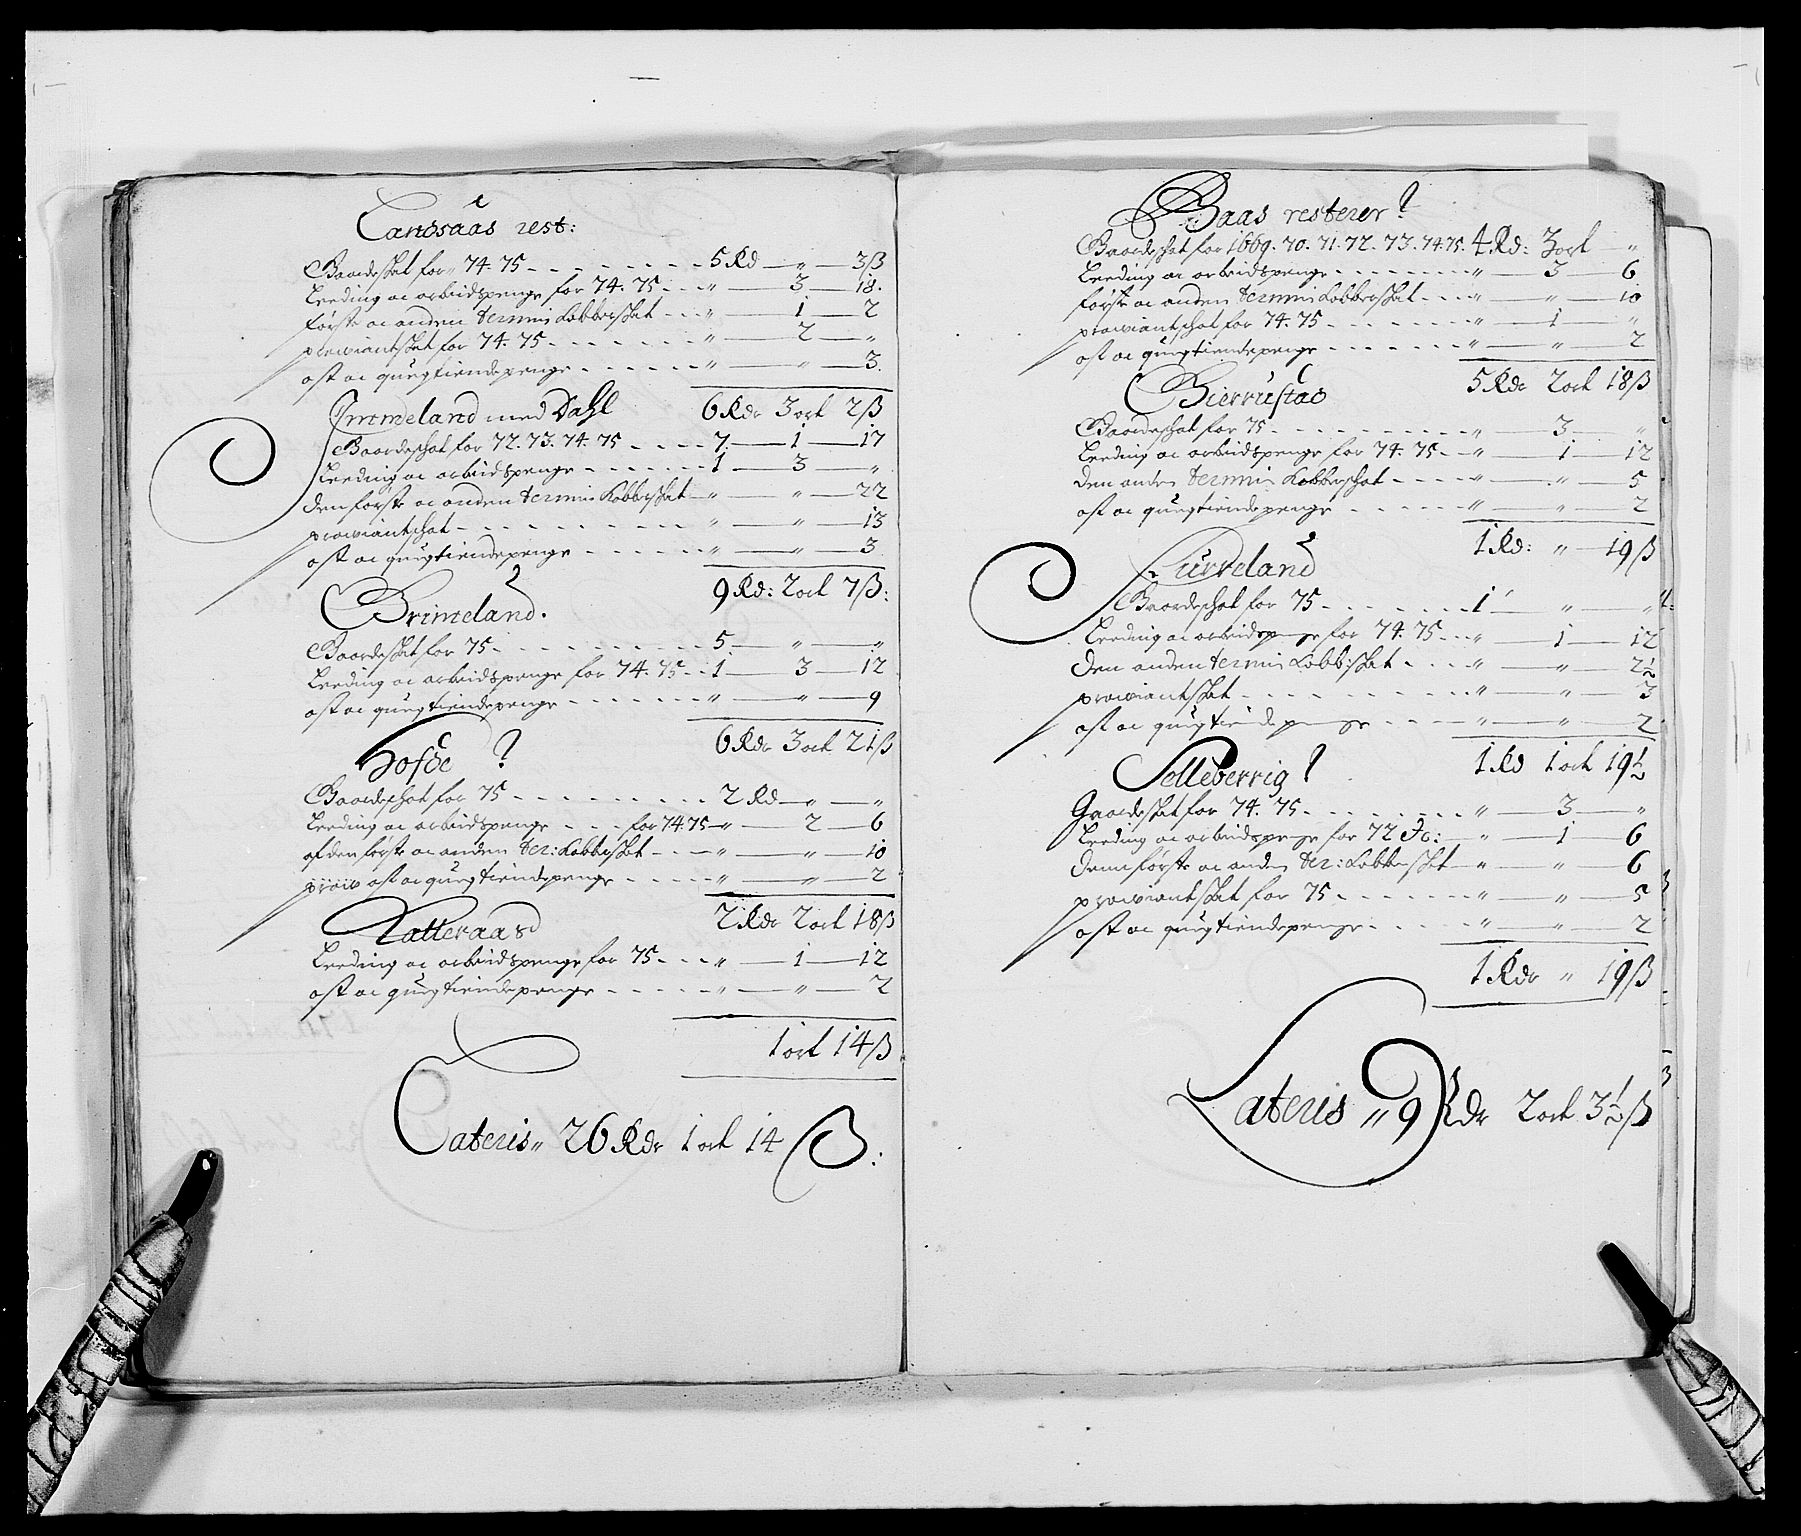 Landsaas rest:
Gaardeskat for 74. 75 5 Rd " 3 ß
Leeding oc arbeidspenge for 74. 75 " 3 18.
første oc anden termin Kobberskat " 1 2
proviantskat for 74. 75 " 2 "
ost oc quegtiendepenge " " 3.
6 Rdr 3 ort 2 ß
Jmmeland med Dahl
Gaardeskat for 72. 73. 74. 75 7 1 17
Leeding oc arbeidspenge 1 3 "
den første oc anden termin Kobberskat " " 22
proviantschat " " 13
ost oc quegtiendepenge " " 3
9 Rd: 2 ort 7 ß:
Grimeland.
Gaardeskat for 75 5 " "
Leeding oc arbeidspenge for 74. 75 1 3 12
ost oc quegtiendepenge " " 9
6 Rdr 3 ort 21 ß
Hofde
Gaardeschat for 75 2 Rd " "
Leeding oc arbeidspenge for 74 75 " 2 6
af den første oc anden ter: Kobberskat " " 10
prov ost oc quegtiendepenge " " 2
2 Rdr 2 ort 18 ß
Leeding oc arbeidspenge for 75 " 1 12
ost oc quegtiendepenge " " 2
1 ort 14 ß
Lateris " 26 Rdr 1 ort 14 ß:
Baas resterer
Gaardeschat for 1669. 70. 71. 72. 73. 74 75. 4 Rd: 3 ort "
Leeding oc arbeidspenge " 3 6
første oc anden termin Kobberskat " " 10
proviantschat for 74. 75 " 1 "
ost oc quegtiendepenge " " 2
5 Rdr 2 ort 18 ß
Bierrustad
Gaardeschat for 75 " 3 "
Leeding oc arbeidspenge for 74. 75 " 1 12
Den anden termin Kobberschat " " 5
ost oc quegtiendepenge " " 2
1 Rd: " 19 ß
Lurreland
Gaardeschat for 75 1 " "
Leeding oc arbeidspenge for 74. 75 " 1 12
Den anden termin Kobb:skat " " 2½
proviantskat " " 3
ost oc quegtiendepenge " " 2
1 Rd 1 ort 19½
Selleberrig
Gaardeskat for 74. 75 " 3 "
Leeding oc arbeidspenge for 72 &c: " 1 6
Denn første oc anden ter: Kobberskat " " 6
proviantskat for 75 " " 5
ost oc quegtiendepenge " " 2
1 Rdr " 19 ß
Lateris " 9 Rdr 2 ort 3½ ß